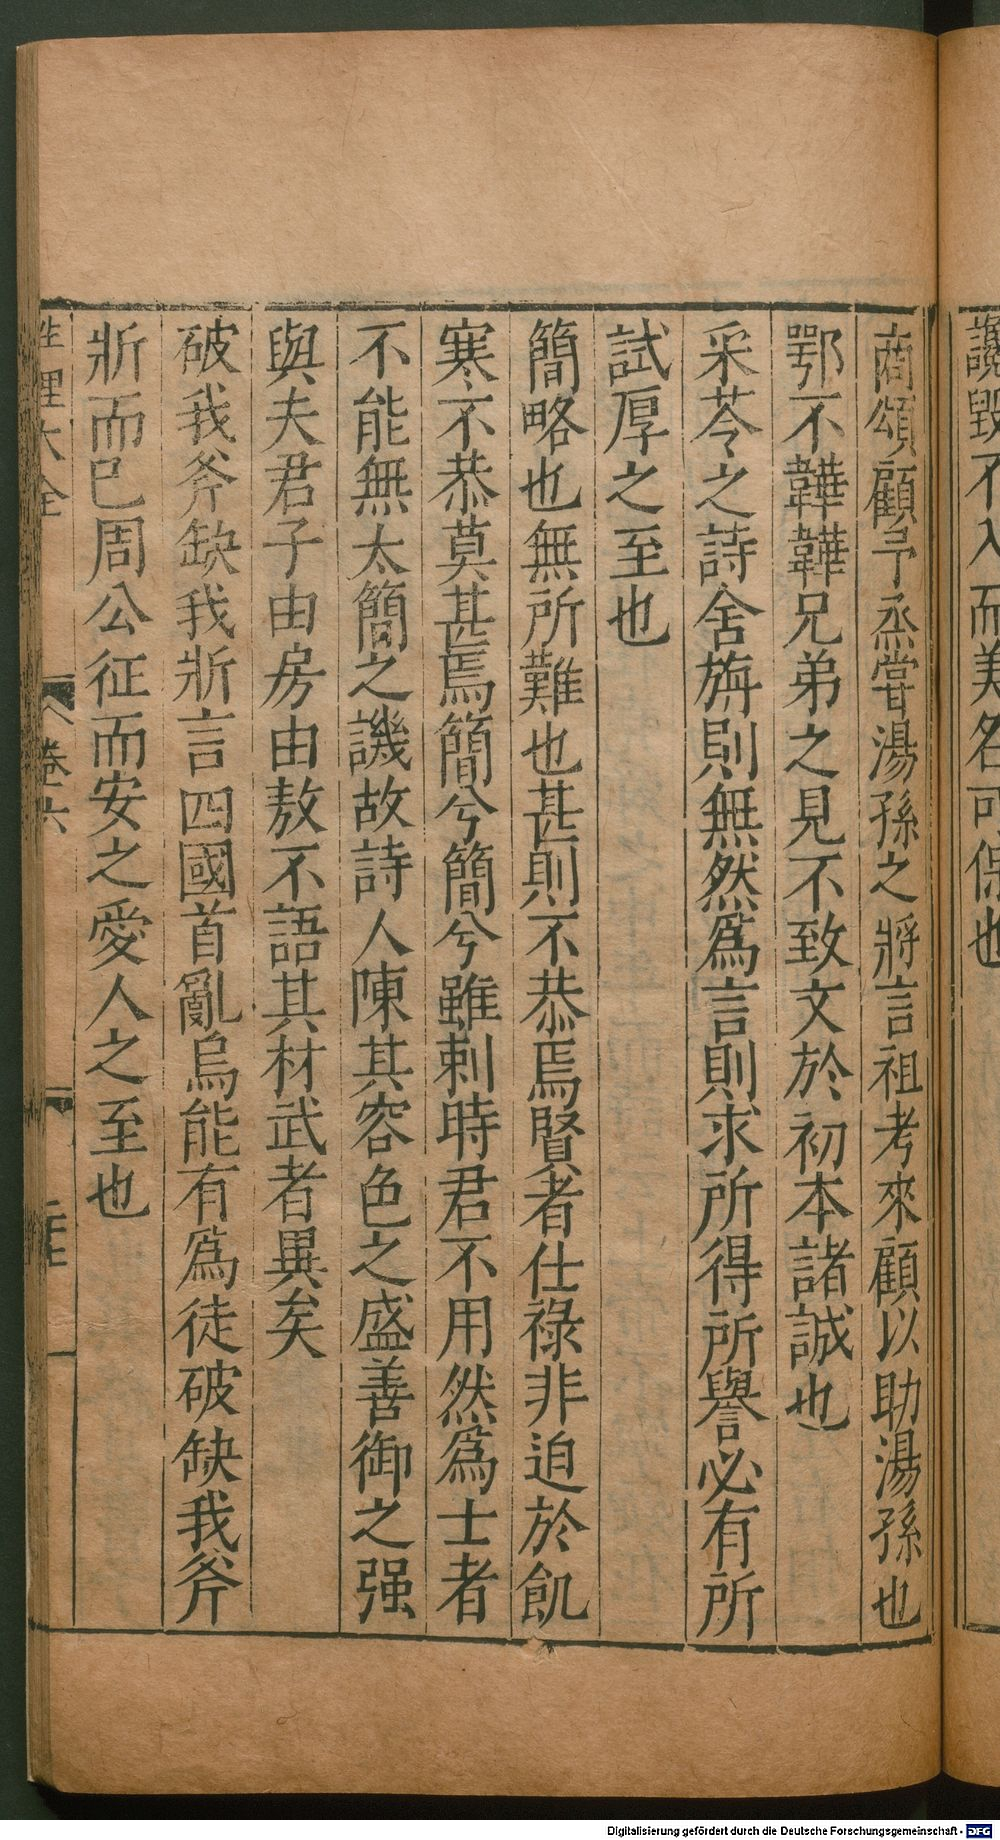 讒毀不入而美名可保也
商頌顧予烝嘗湯孫之將言祖考來顧以助湯孫也
鄂不韡韡兄弟之見不致文於初本諸誠也
采苓之詩舍旃則無然爲言則求所得所譽必有所
試厚之至也
簡略也無所難也甚則不恭焉賢者仕祿非迫於飢
寒不恭莫甚焉簡兮簡兮雖刺時君不用然爲士者
不能無太簡之譏故詩人陳其容色之盛善御之强
與夫君子由房由敖不語其材武者異矣
破我斧缺我斨言四國首亂烏能有爲徒破缺我斧
斨而已周公征而安之愛人之至也
性理大全 卷六 二十七
Digitalisierung gefördert durch die Deutsche Forschungsgemeinschaft - DFG